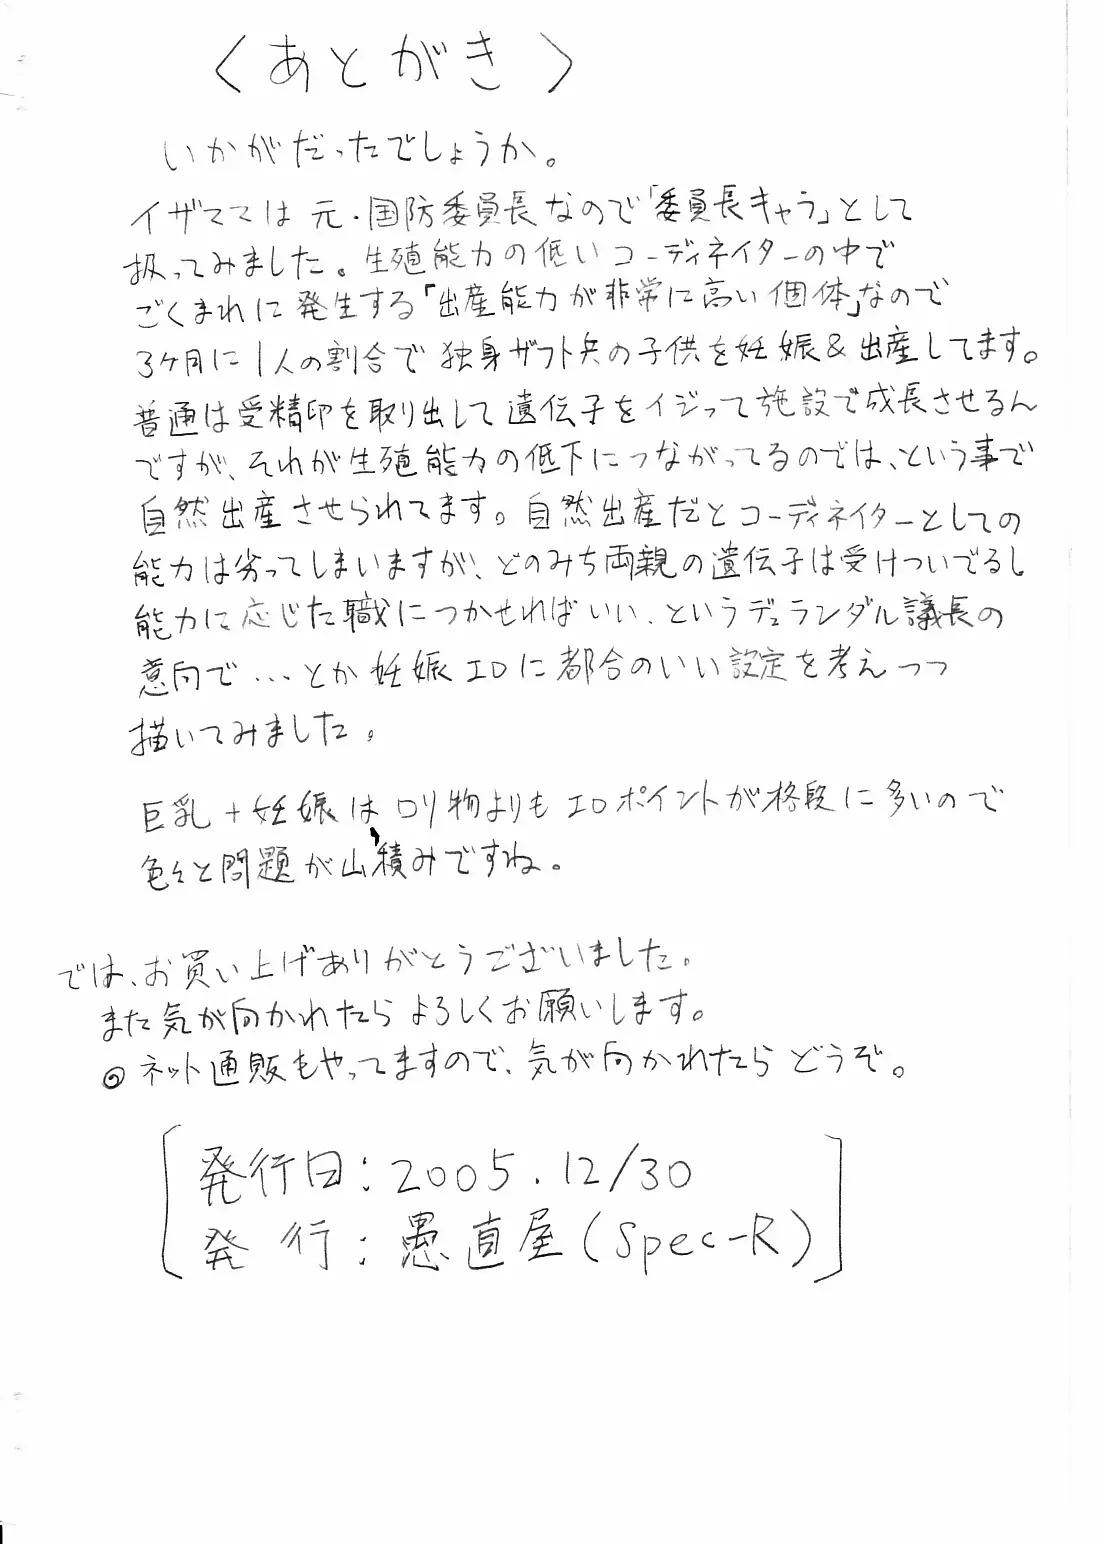 〈あとがき〉
いかがだったでしょうか。
イザママは元・国防委員長なので「委員長キャラ」として
扱ってみました。生殖能力の低いコーディネイターの中で
ごくまれに発生する「出産能力が非常に高い個体」なので
3ケ月に1人の割合で独身ザフト兵の子供を妊娠&出産してます。
普通は受精卵を取り出して遺伝子をイジって施設で成長させるん
ですが、それが生殖能力の低下につながってるのでは、という事で
自然出産させられてます。自然出産だとコーディネイターとしての
能力は劣ってしまいますが、どのみち両親の遺伝子は受けついでるし
能力に応じた職につかせればいい、というデュランダル議長の
意向で…とか妊娠エロに都合のいい設定を考えつつ
描いてみました。
巨乳+妊娠はロリ物よりもエロポイントが格段に多いので
色々と問題が山積みですね。
では、お買い上げありがとうございました。
また気が向かれたらよろしくお願いします。
◎ネット通販もやってますので、気が向かれたらどうぞ。
発行日:2005.12/30
発行:愚直屋(Spec-R)